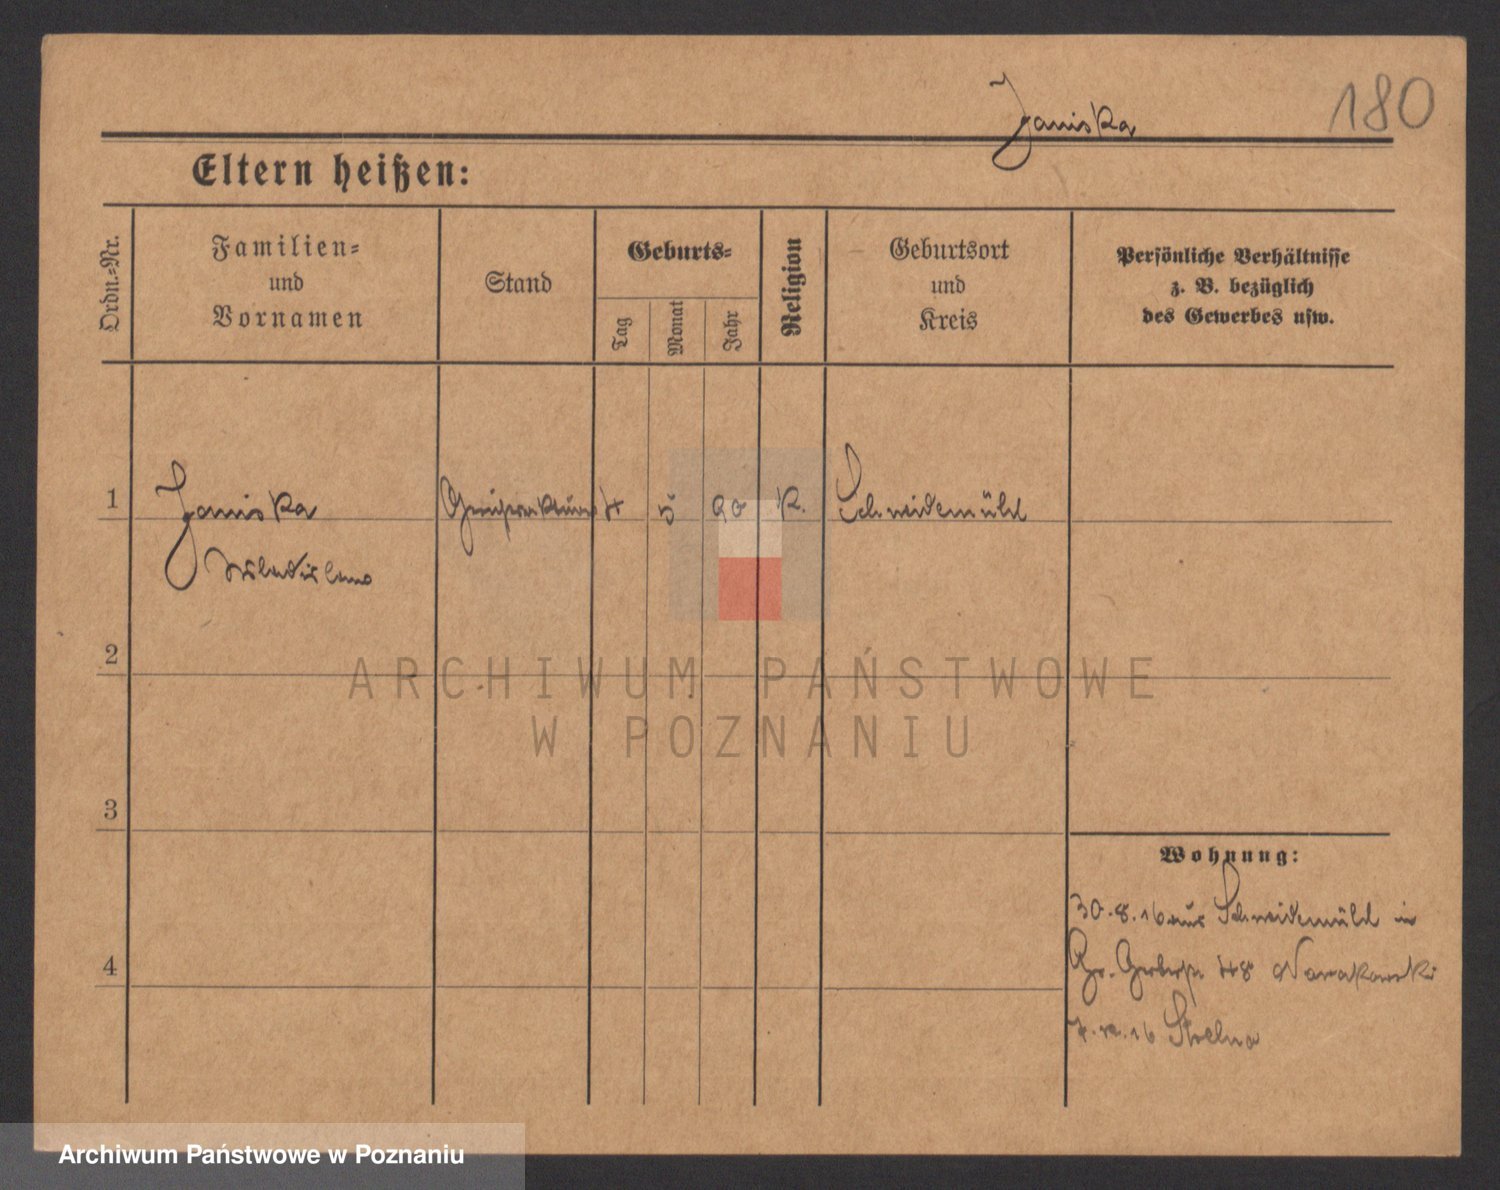 Janiska 180
Eltern heißen:
Ordn.=Nr.
Familien=
und
Vornamen
Stand
Geburts=
Tag
Monat
Jahr
Religion
Geburtsort
und
Kreis
Persönliche Verhältnisse
z. B. bezüglich
des Gewerbes usw.
1 Janiska 4 5 90 K. Schneidemühl
Wladislaus
2
ARCHIWUM PAŃSTWOWE
W POZNANIU
3
Wohnung:
30.8.16 aus Schneidemühl in
Gr. Gerberstr. 48 Nowakowski
4
16 Strelno
Archiwum Państwowe w Poznaniu